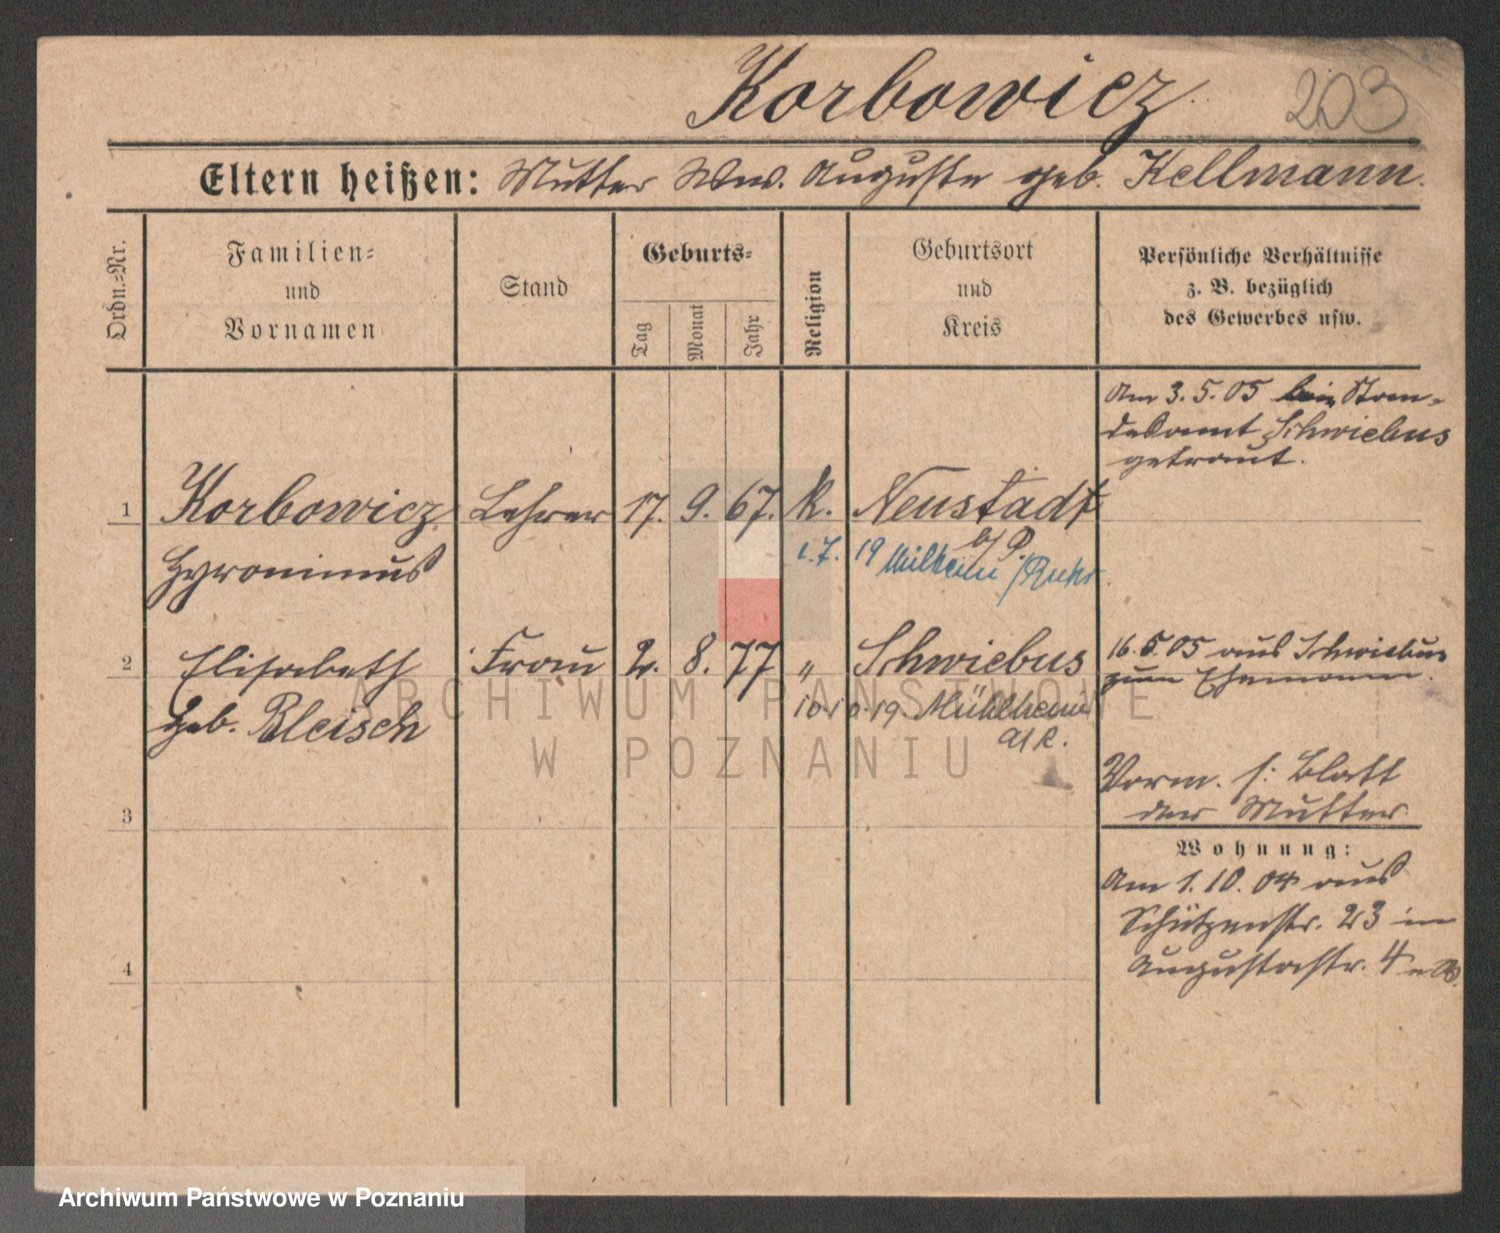 Korbowicz
203
Eltern heißen: Mutter Ww. Auguste geb. Kellmann.
Ordn.-Nr.
Familien-
und
Vornamen
Stand
Geburts-
Tag
Monat
Jahr
Religion
Geburtsort
und
Kreis
Persönliche Verhältnisse
z. B. bezüglich
des Gewerbes usw.
Am 3.5.05 beim Stan-
desamt Schwiebus
getraut.
1 Korbowicz Lehrer 17. 9. 67. K. Neustadt
b/P.
Hyronimus
1.7. 19 Mülheim/Ruhr.
2 Elisabeth Frau 2. 8. 77 " Schwiebus
geb. Bleisch
10.10.19. Mühlheim
a/R.
16.5.05 aus Schwiebus
zum Ehemann.
Vorm. s: Blatt
der Mutter
3
Wohnung:
Am 1.10.04 aus
Schützenstr. 23 in
Augustastr. 4
4
ARCHIWUM PAŃSTWOWE
W POZNANIU
Archiwum Państwowe w Poznaniu